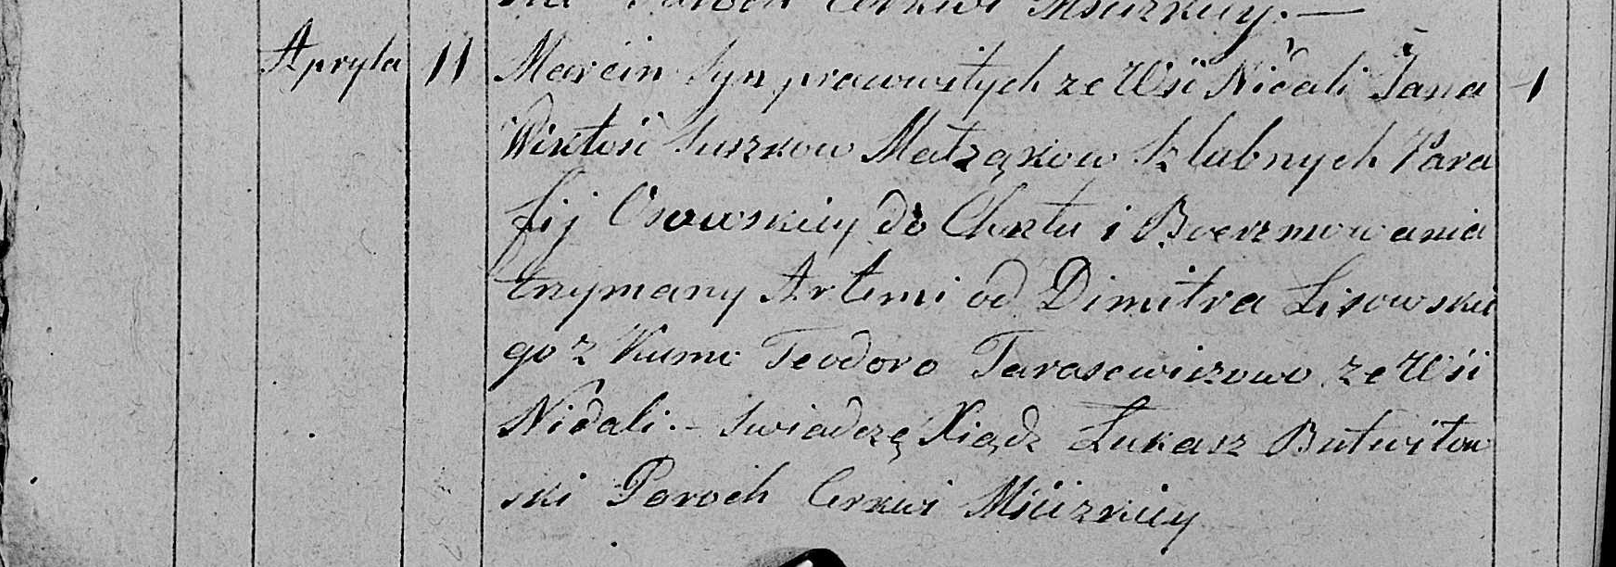 Paroch Cerkwi Mściżkiey. —
Apryla 11 Marcin Syn prawowitych ze Wśi Nidali Jana 1
Wiktośi Suszkow Małżąkow Szlubnych Para
fij Osowskiey do Chrztu i Bierzmowania
trzymany Artemi od Dimitra Lisowskie
go z Kumo Teodoro Tarasewiczowo ze Wśi
Nidali. – Swiadczę Xiądz Łukasz Butwiłow
ski Paroch Cerkwi Mściżkiey